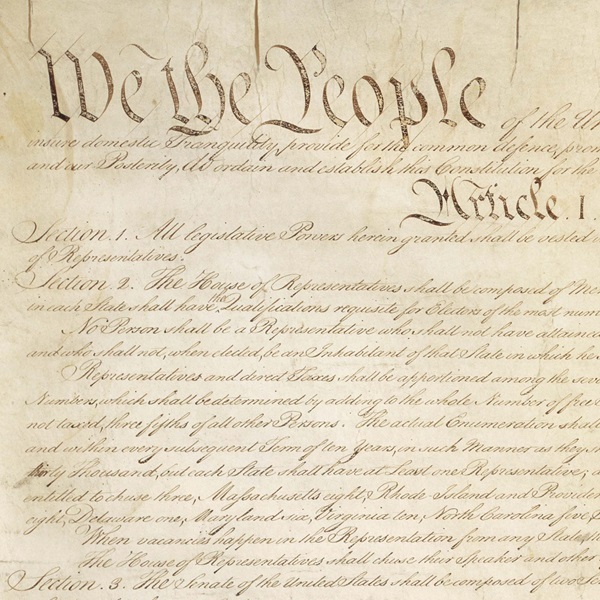 We the People of the Un
insure domestic Tranquility, provide for the common defence, prom
and our Posterity, do ordain and establish this Constitution for the
Article. I.
Section. 1. All legislative Powers herein granted shall be vested
of Representatives.
Section. 2. The House of Representatives shall be composed of Me
in each State shall have the Qualifications requisite for Electors of the most num
No Person shall be a Representative who shall not have attained
and who shall not, when elected, be an Inhabitant of that State in which he
Representatives and direct Taxes shall be apportioned among the seve
Numbers, which shall be determined by adding to the whole Number of free
not taxed, three fifths of all other Persons. The actual Enumeration shall
and within every subsequent Term of ten Years, in such Manner as they
thirty Thousand, but each State shall have at Least one Representative; a
entitled to chuse three, Massachusetts eight, Rhode-Island and Providen
eight, Delaware one, Maryland six, Virginia ten, North Carolina five
When vacancies happen in the Representation from any State
The House of Representatives shall chuse their Speaker and other
Section. 3. The Senate of the United States shall be composed of two Se